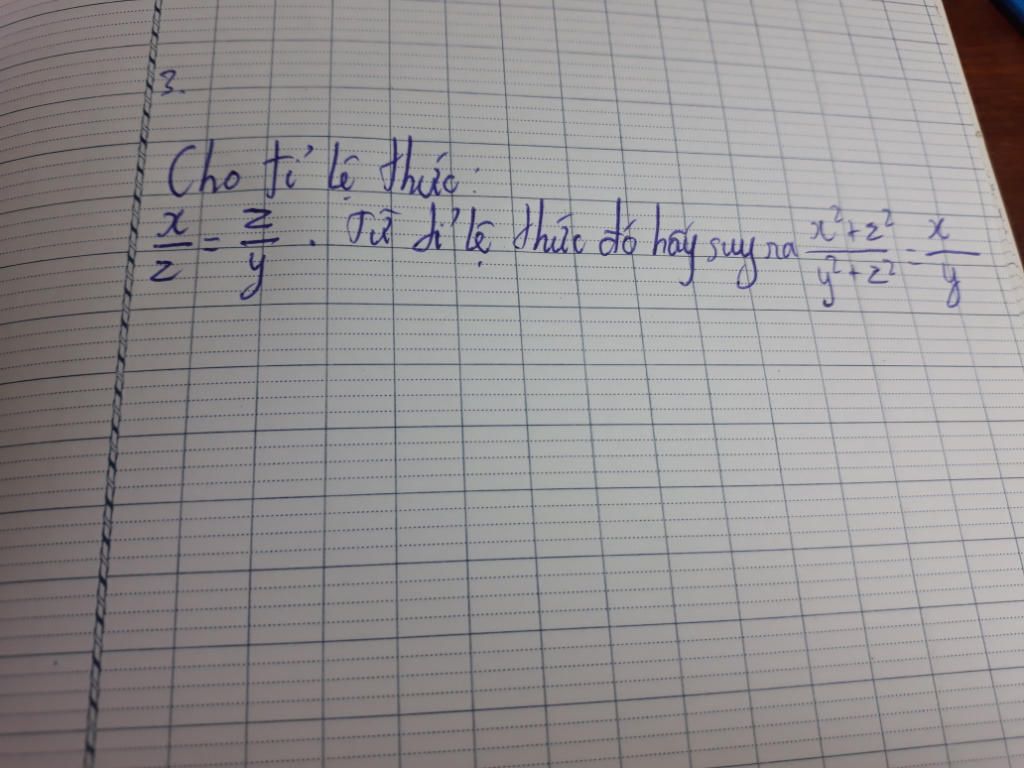 3.
Cho tỉ lệ thức:
x/z = z/y . Từ tỉ lệ thức đó hãy suy ra x²+z²/y²+z² = x/y